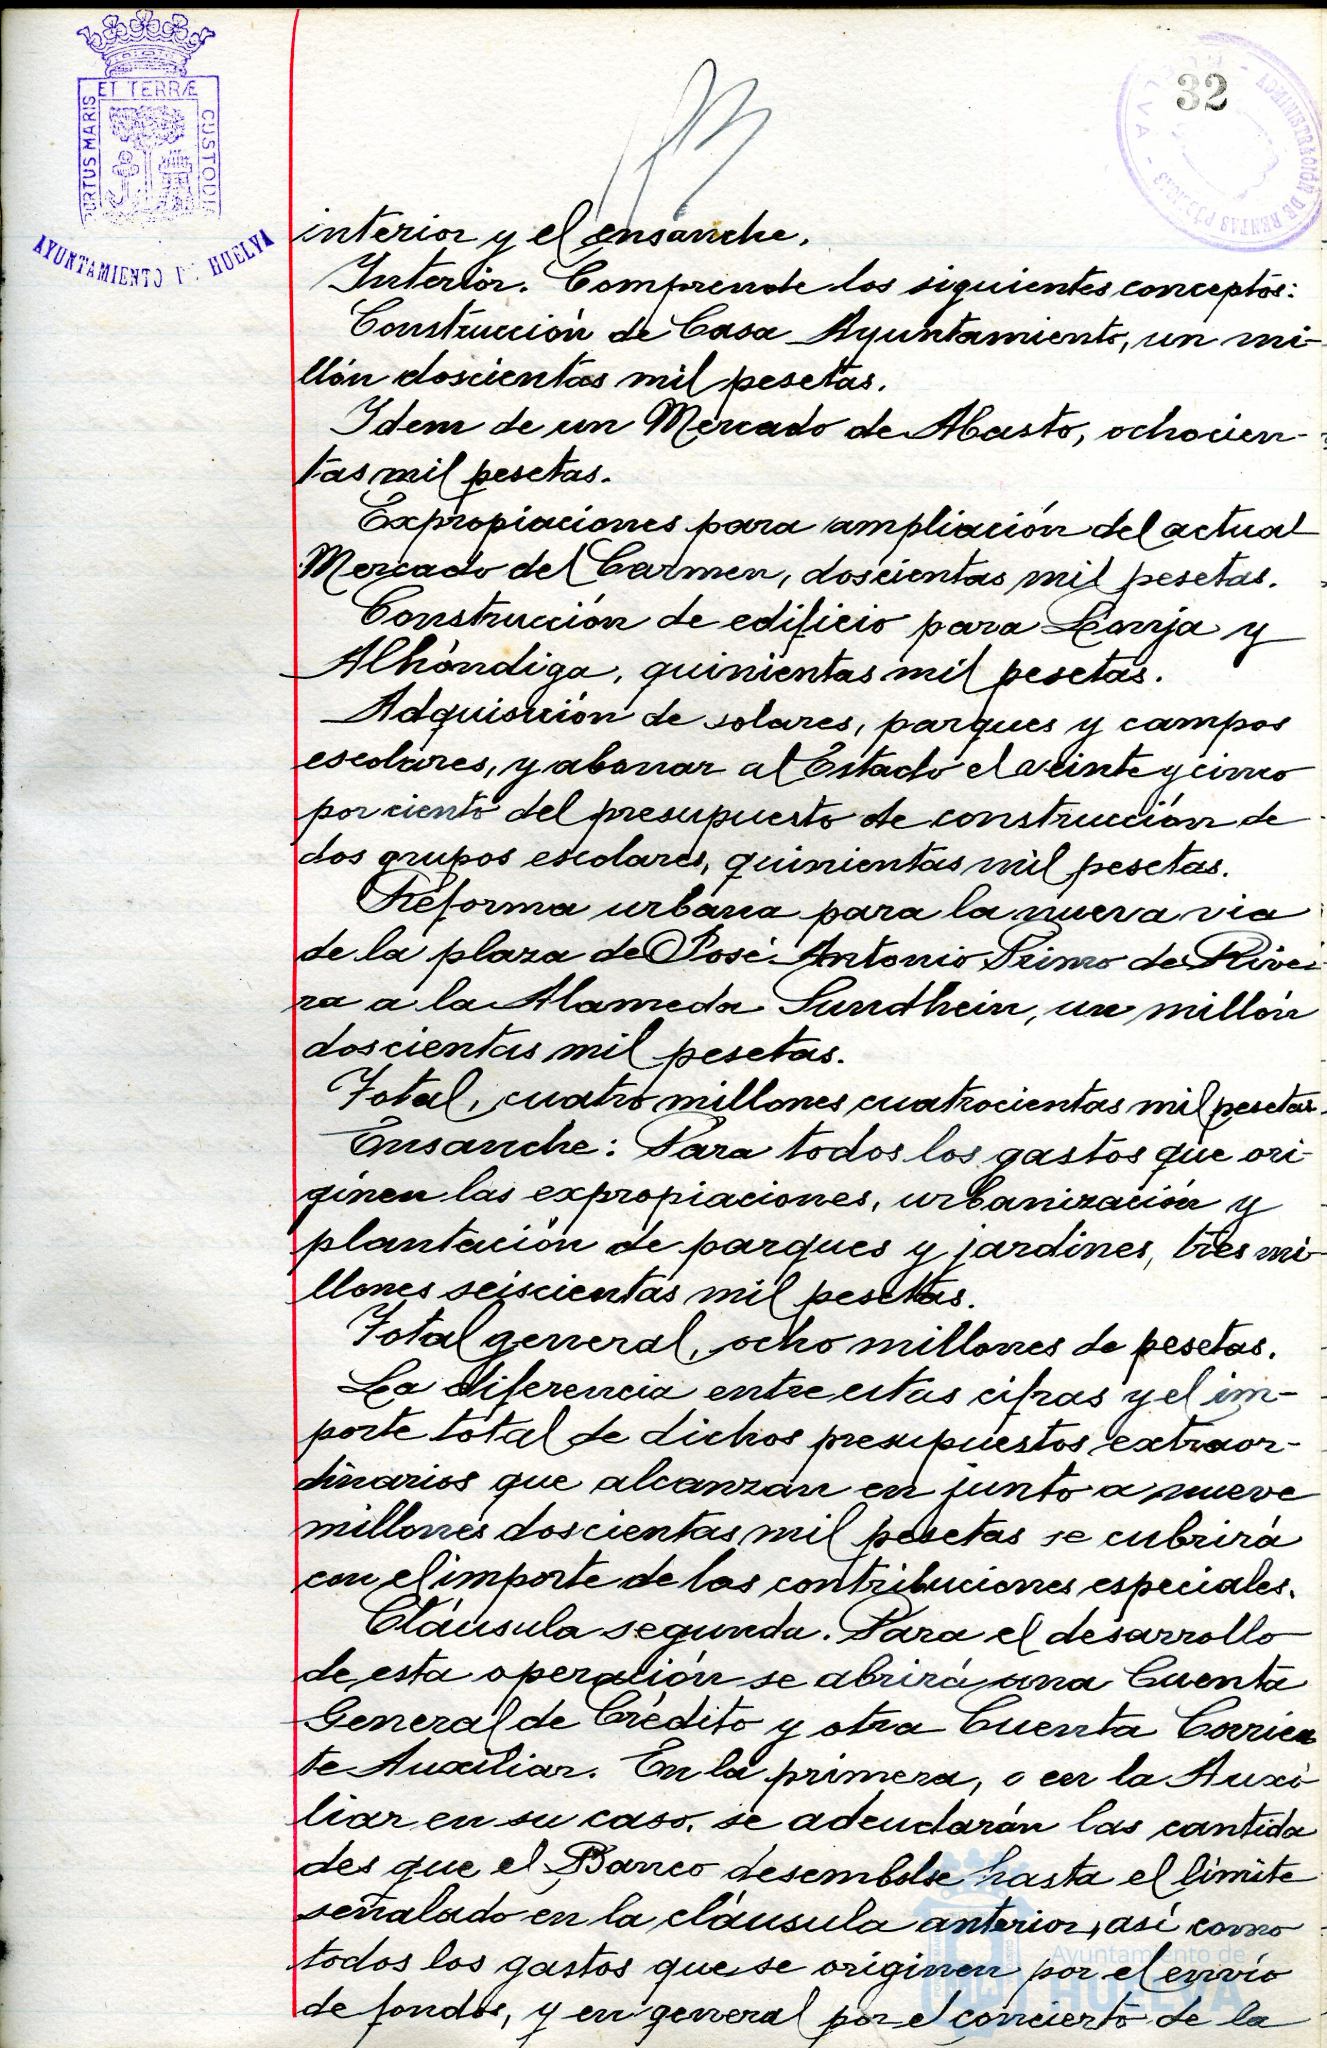 PORTUS MARIS ET TERRÆ CUSTODIA
AYUNTAMIENTO DE HUELVA
ADMINISTRACIÓN DE RENTAS PÚBLICAS
- HUELVA -
32
interior y el ensanche.
Interior. Comprende los siguientes conceptos:
Construcción de Casa Ayuntamiento, un mi-
llón doscientas mil pesetas.
Idem de un Mercado de Abasto, ochocien-
tas mil pesetas.
Expropiaciones para ampliación del actual
Mercado del Carmen, doscientas mil pesetas.
Construcción de edificio para Lonja y
Alhóndiga, quinientas mil pesetas.
Adquisición de solares, parques y campos
escolares, y abonar al Estado el veinte y cinco
por ciento del presupuesto de construcción de
dos grupos escolares, quinientas mil pesetas.
Reforma urbana para la nueva via
de la plaza de José Antonio Primo de Rive-
ra a la Alameda Sundhein, un millón
doscientas mil pesetas.
Total, cuatro millones cuatrocientas mil pesetas.
Ensanche: Para todos los gastos que ori-
ginen las expropiaciones, urbanización y
plantación de parques y jardines, tres mi-
llones seiscientas mil pesetas.
Total general, ocho millones de pesetas.
La diferencia entre estas cifras y el im-
porte total de dichos presupuestos extraor-
dinarios que alcanzan en junto a nueve
millones doscientas mil pesetas se cubrirá
con el importe de las contribuciones especiales.
Cláusula segunda. Para el desarrollo
de esta operación se abrirá una Cuenta
General de Crédito y otra Cuenta Corrien
te Auxiliar. En la primera, o en la Auxi
liar en su caso, se adeudarán las cantida
des que el Banco desembolse hasta el límite
señalado en la cláusula anterior, así como
todos los gastos que se originen por el envío
de fondos, y en general por el concierto de la
Ayuntamiento de
HUELVA